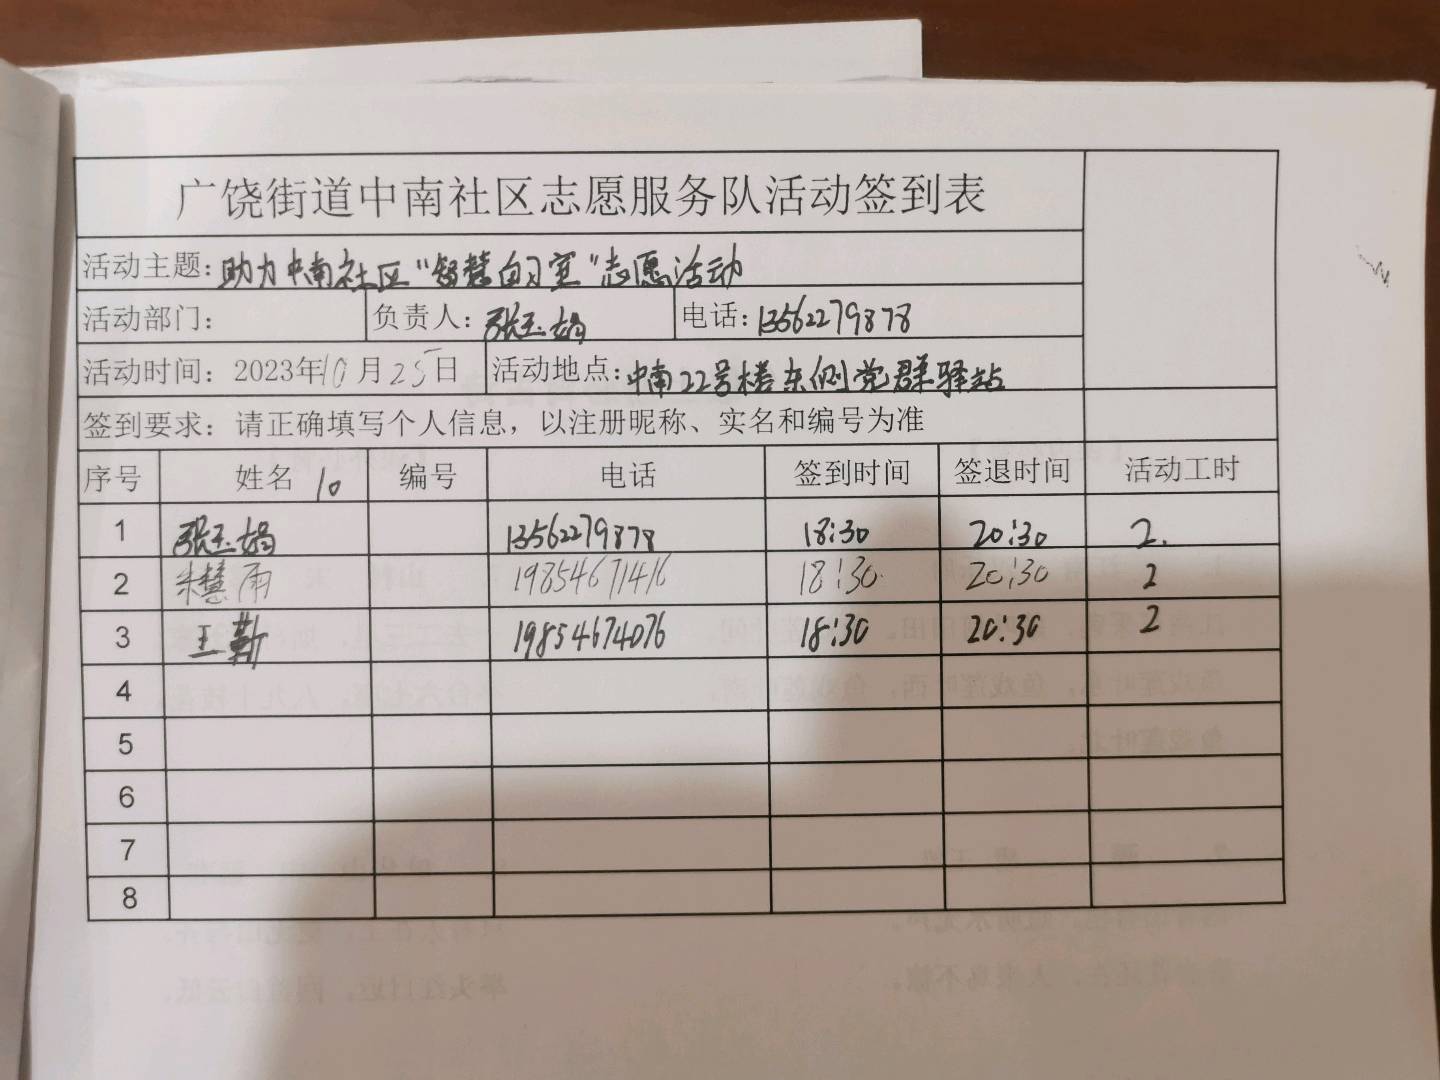 广饶街道中南社区志愿服务队活动签到表
活动主题：助力中南社区“智慧自习室”志愿活动
活动部门： 负责人：张玉娟 电话：13562279878
活动时间：2023年10月25日 活动地点：中南22号楼东侧党群驿站
签到要求：请正确填写个人信息，以注册昵称、实名和编号为准
序号 姓名 10 编号 电话 签到时间 签退时间 活动工时
1 张玉娟 13562279878 18:30 20:30 2.
2 朱慧雨 19854671416 18:30 20:30 2
3 王勤 19854674076 18:30 20:30 2
4
5
6
7
8